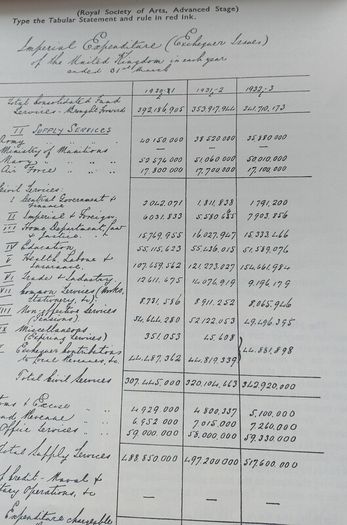 (Royal Society of Arts, Advanced Stage)
Type the Tabular Statement and rule in red ink.
Imperial Expenditure (Exchequer Issues)
of the United Kingdom in each year
ended 31st March
1930-31 1931-2 1932-3
Total Consolidated Fund
Services - Brought Forward 392,186,905 353,917,944 341,710,173
II SUPPLY SERVICES
Army 40,150,000 38,520,000 35,880,000
Ministry of Munitions
Navy 52,574,000 51,060,000 50,010,000
Air Force 17,800,000 17,700,000 17,100,000
Civil Services:
I Central Government &
Finance 2,042,071 1,811,838 1,791,200
II Imperial & Foreign 6,031,833 5,580,685 7,903,856
III Home Department, Law
& Justice 15,769,955 16,027,947 15,333,466
IV Education 55,115,623 55,436,015 51,589,076
V Health, Labour &
Insurance 107,659,562 121,273,027 154,661,984
VI Trade & Industry 12,611,675 14,076,919 9,196,179
VII Common Services (Works,
Stationery, &c) 8,731,586 8,911,252 8,065,946
VIII Non-effective Services
(Pensions) 54,644,280 52,122,053 49,496,395
IX Miscellaneous
(Expiring Services) 351,053 45,608
X Exchequer Contributions
to Local Revenues, &c 44,487,362 44,819,339 44,881,898
Total Civil Services 307,445,000 320,104,663 342,920,000
ms & Excise 4,929,000 4,800,337 5,100,000
nd Revenue 6,952,000 7,015,000 7,260,000
Office Services 59,000,000 58,000,000 59,330,000
Total Supply Services 488,850,000 497,200,000 517,600,000
f Credit - Naval &
tary Operations, &c — — —
Expenditure chargeable